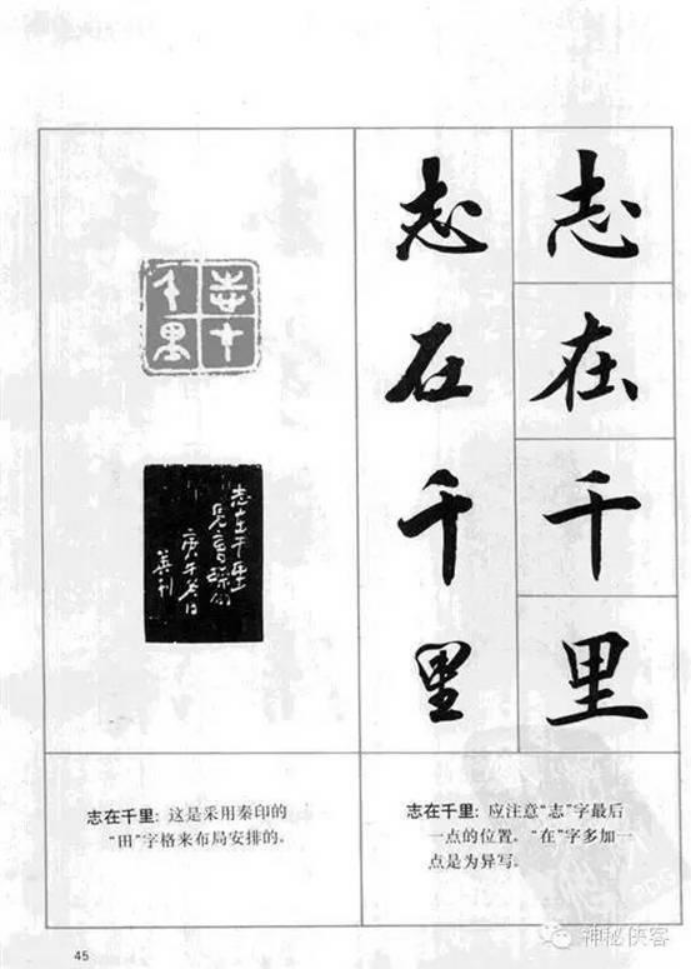 志在千里
志在千里
志在千里
志在千里
志在千里：这是采用秦印的
“田”字格来布局安排的。
志在千里：应注意“志”字最后
一点的位置。“在”字多加一
点是为异写。
45
神秘侠客